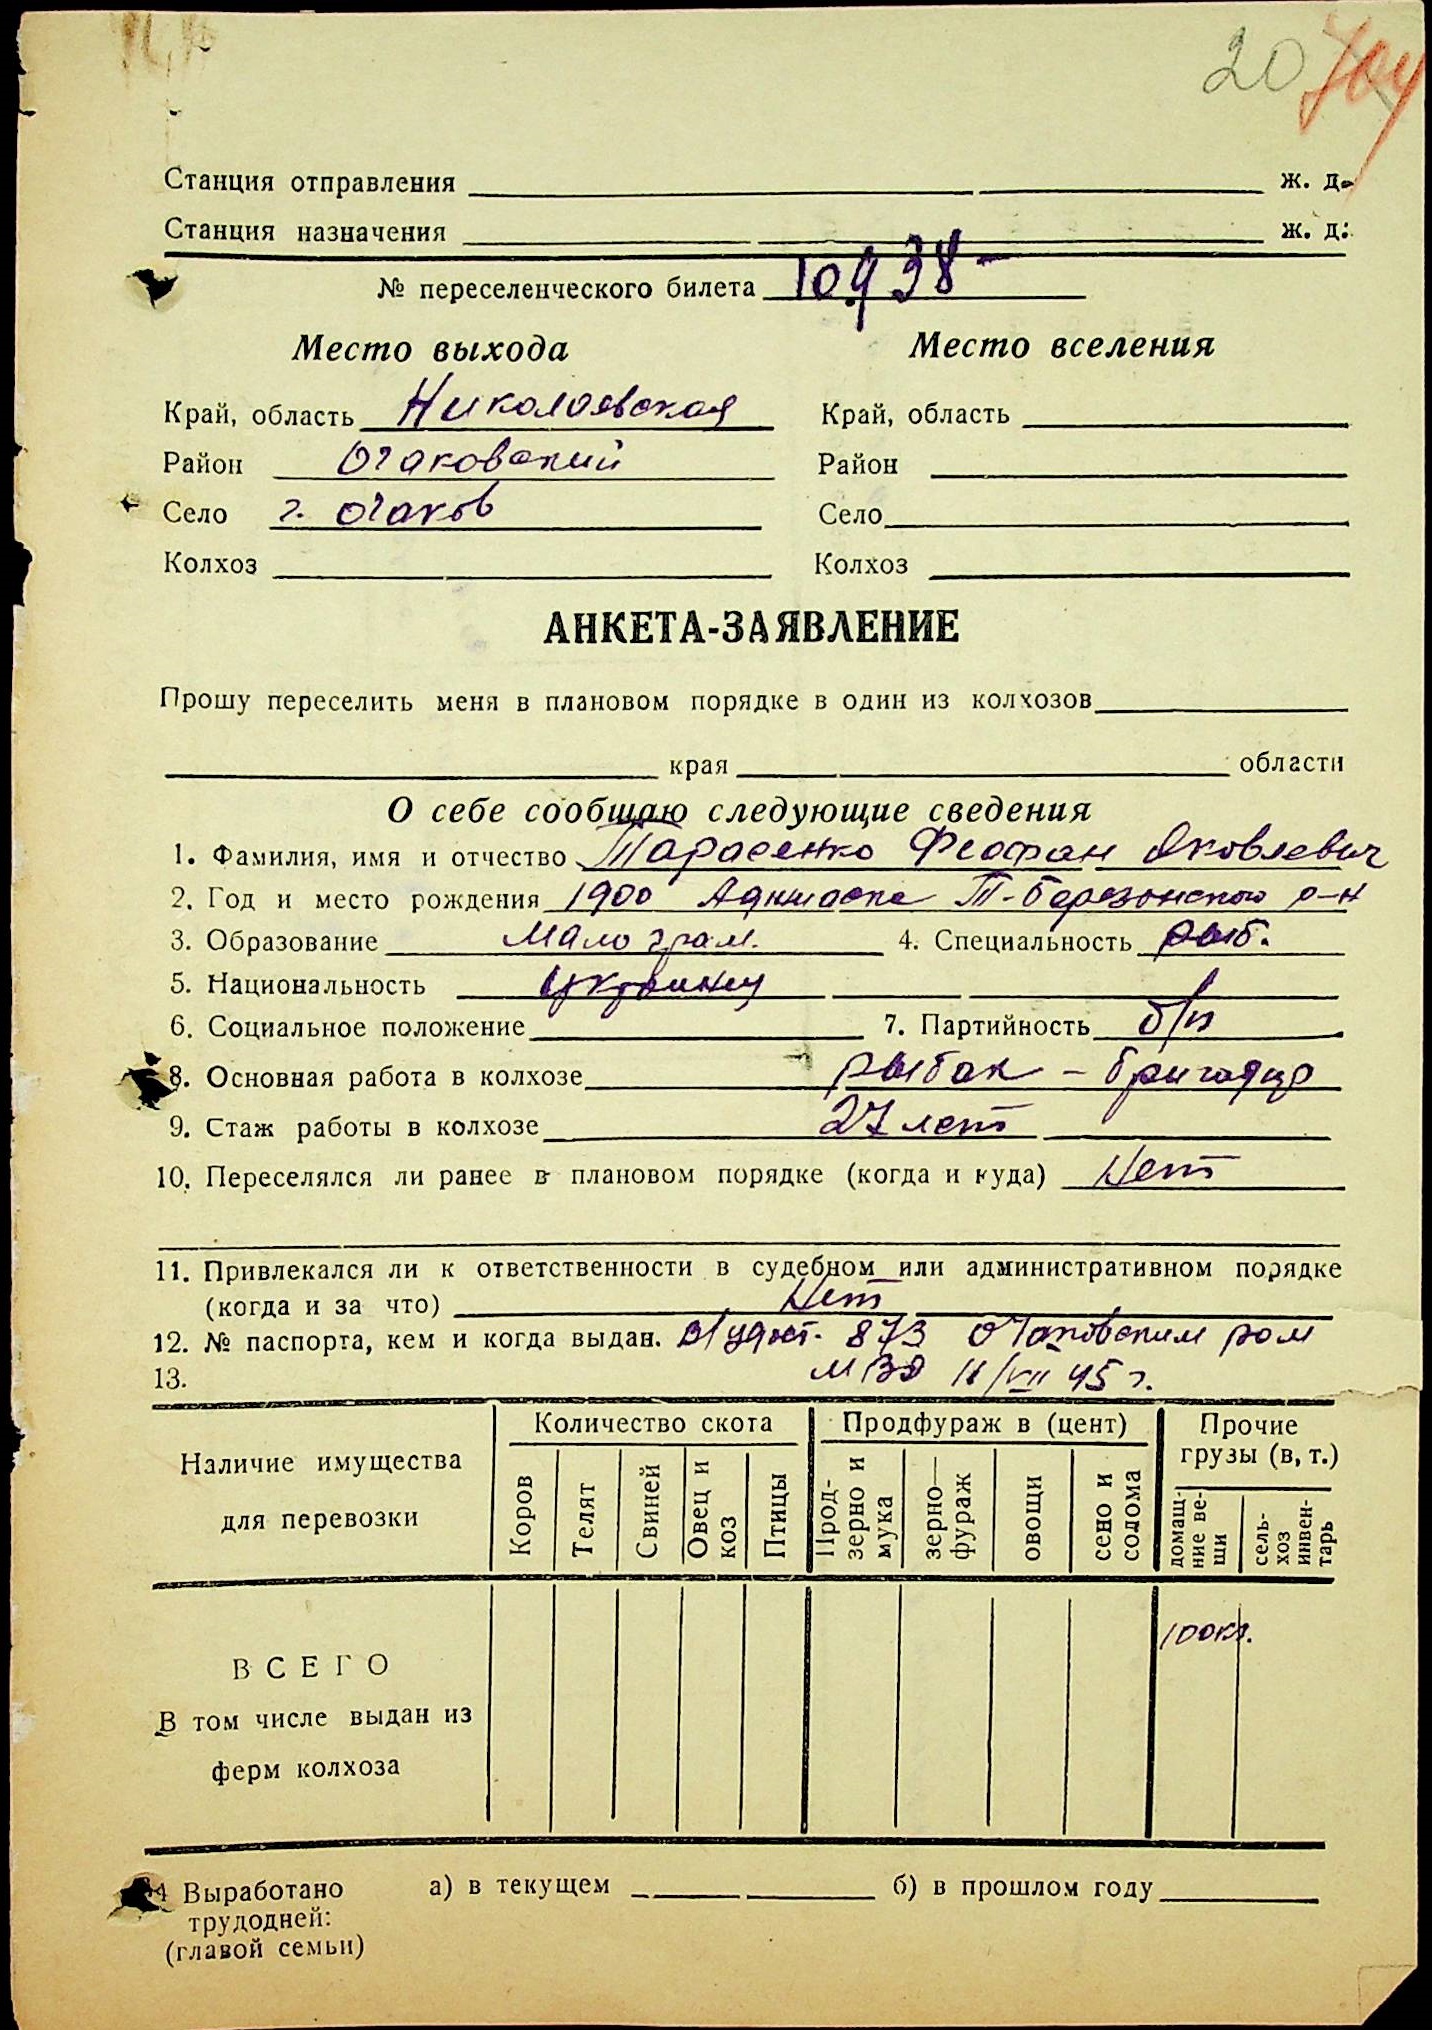 20 704
Станция отправления ж. д.
Станция назначения ж. д.
№ переселенческого билета 10938 -
Место выхода Место вселения
Край, область Николаевская Край, область
Район Очаковский Район
Село г. Очаков Село
Колхоз Колхоз
АНКЕТА-ЗАЯВЛЕНИЕ
Прошу переселить меня в плановом порядке в один из колхозов
края области
О себе сообщаю следующие сведения
1. Фамилия, имя и отчество Тарасенко Феофан Яковлевич
2. Год и место рождения 1900 Т-Березанского р-н
3. Образование мало грам. 4. Специальность рыб.
5. Национальность украинец
6. Социальное положение 7. Партийность б/п
8. Основная работа в колхозе рыбак - бригадир
9. Стаж работы в колхозе 27 лет
10. Переселялся ли ранее в плановом порядке (когда и куда) Нет
11. Привлекался ли к ответственности в судебном или административном порядке
(когда и за что) Нет
12. № паспорта, кем и когда выдан. 873 Очаковским ром
13. МВД 11/VII 45 г.
Наличие имущества для перевозки
Количество скота Продфураж в (цент) Прочие грузы (в, т.)
Коров Телят Свиней Овец и коз Птицы Прод-зерно и мука зерно-фураж овощи сено и солома домаш-ние ве-щи сель-хоз инвен-тарь
ВСЕГО 100кг.
В том числе выдан из
ферм колхоза
14 Выработано а) в текущем б) в прошлом году
трудодней:
(главой семьи)